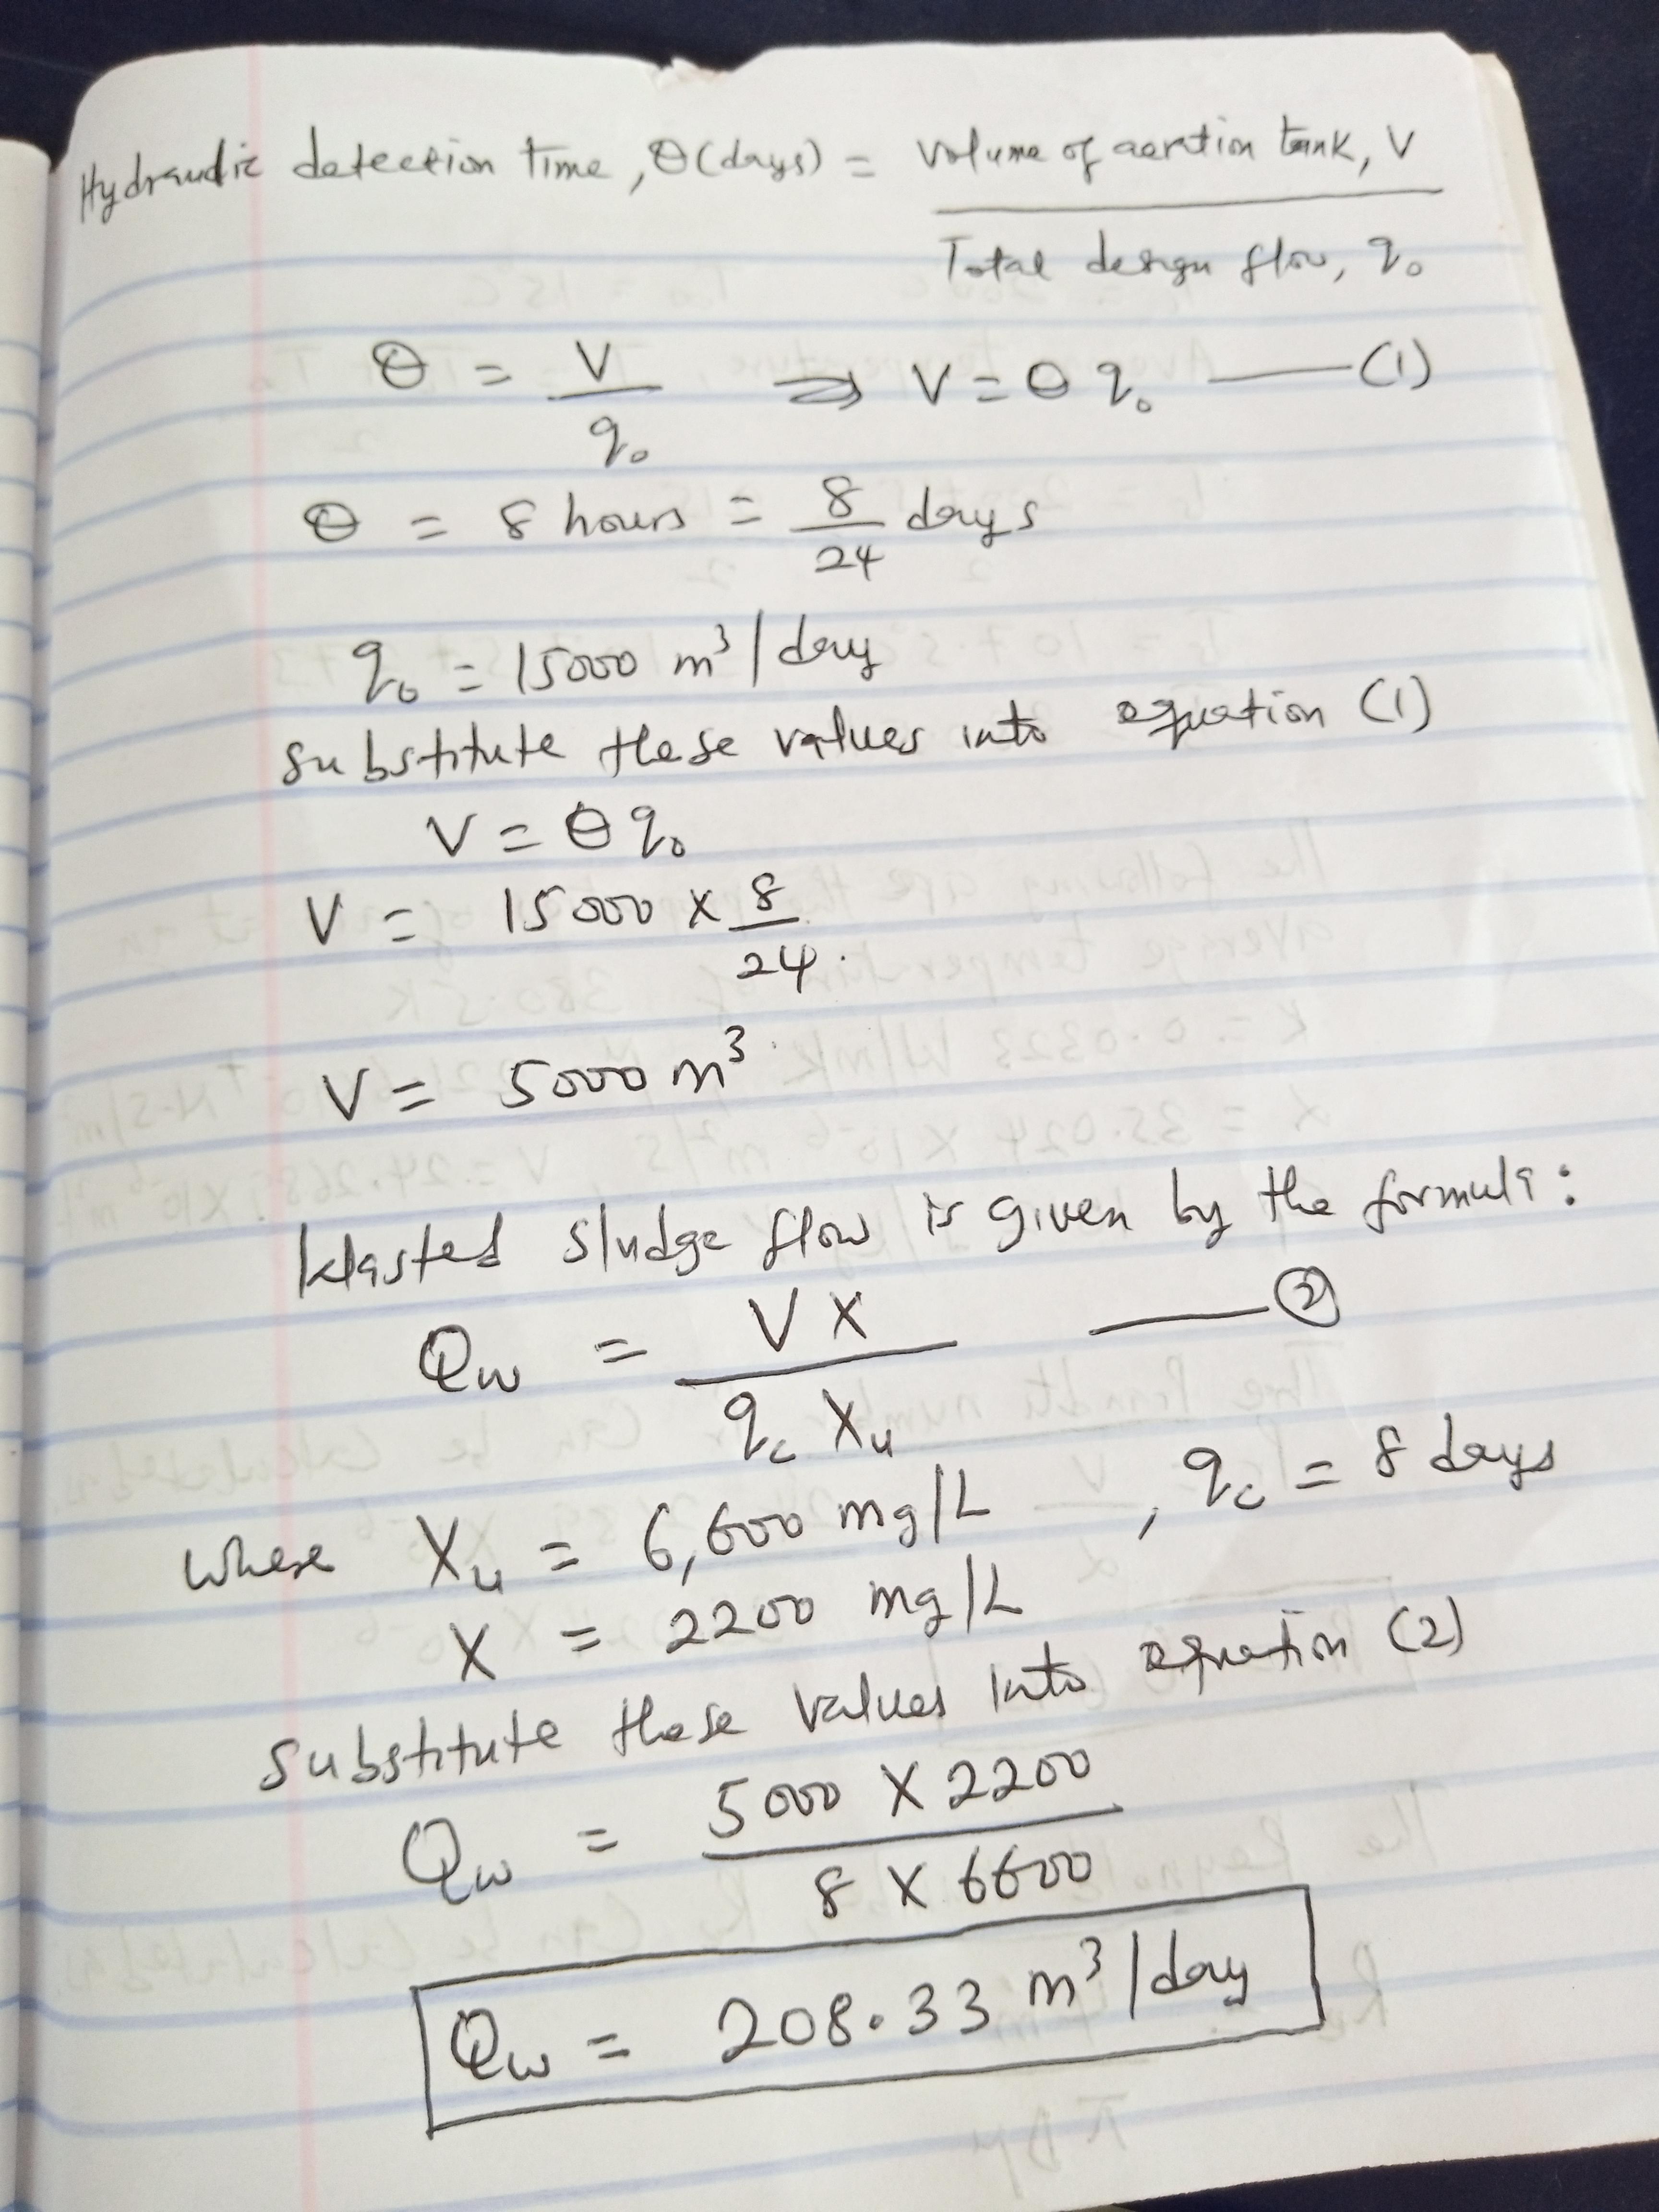 Hydraudic detection time, θ(days) = Volume of aeration tank, V
Total design flow, q₀
θ = V / q₀ ⇒ V = θ q₀ —— (1)
θ = 8 hours = 8/24 days
q₀ = 15000 m³/day
substitute these values into equation (1)
V = θ q₀
V = 15000 × 8/24.
V = 5000 m³
Wasted sludge flow is given by the formula:
Qw = V X / qc Xu —— ②
where Xu = 6,600 mg/L , qc = 8 days
X = 2200 mg/L
substitute these values into equation (2)
Qw = 5000 × 2200 / 8 × 6600
Qw = 208.33 m³/day